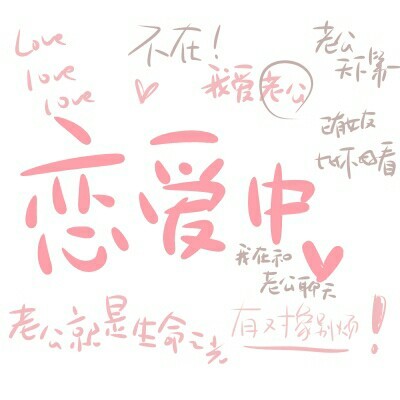 Love
love
love
不在！
我爱老公
老公
天下第一
萌女友
她不自看
恋爱中
我在和
老公聊天
老公就是生命之光
有对象别烦！